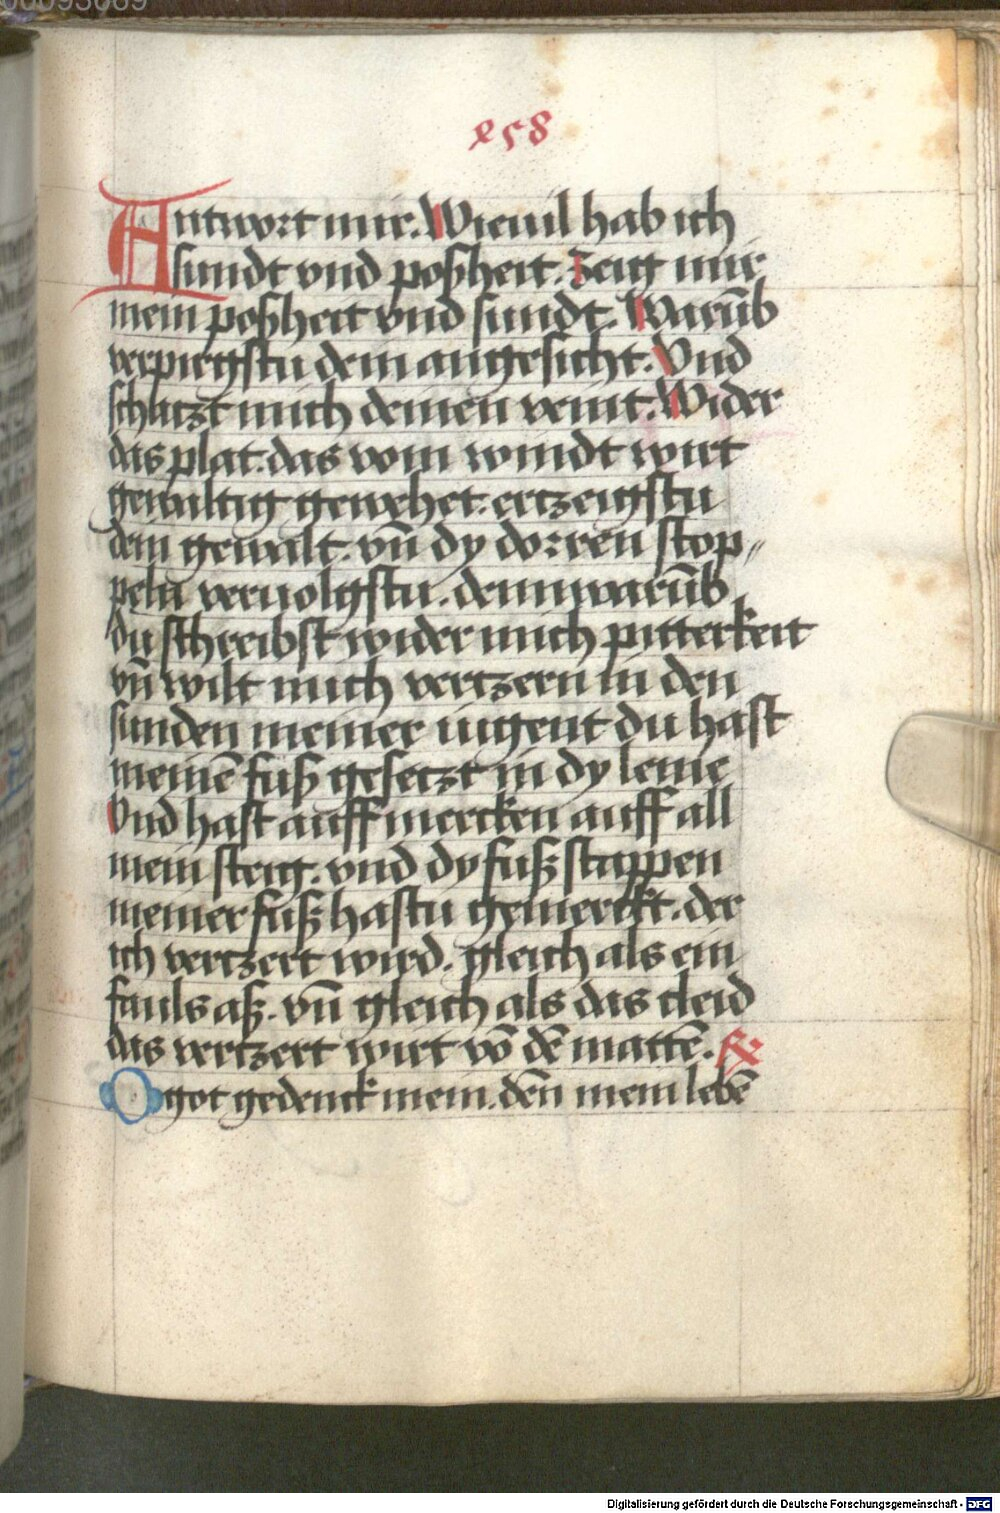 00093089
258
Antwort mir. Wieuil hab ich
sundt vnd poßheit. Zeig mir
mein poßheit vnd sundt. Warūb
verpirgstu dein angesicht. Vnd
schatzt mich deinen veint. Wider
das plat. das vom windt wirt
gewaltig gewehet. ertzeigstu
dein gewalt. vn̄ dy dorren stop〃
peln veruolgstu. denn warūb
du schreibst wider mich pitterkeit
vn̄ wilt mich vertzern in den
sunden meiner iugent du hast
meinē fuß gesetzt in dy leme
Vnd hast auff mercken auff all
mein steig. vnd dy fußstappen
meiner fuß hastu gemerckt. der
ich vertzert wird. gleich als ein
fauls aß. vn̄ gleich als das cleid
das vertzert wirt vō dē mattē. R
O got gedenck mein. den̄ mein lebē
Digitalisierung gefördert durch die Deutsche Forschungsgemeinschaft - DFG